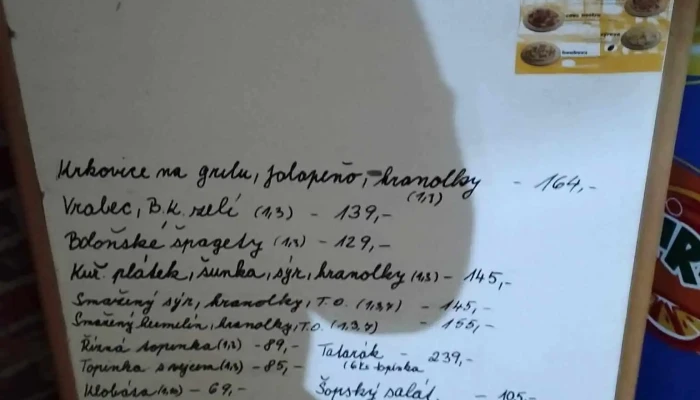 Krkovice na grilu, jalapeňo, hranolky - 164,-
(1,3)
Vrabec, B.K. zelí (1,3) - 139,-
Boloňské špagety (1,3) - 129,-
Kuř. plátek, šunka, sýr, hranolky (1,3) - 145,-
Smažený sýr, hranolky, T.O. (1,3,7) - 145,-
Smažený hermelín, hranolky, T.O. (1,3,7) - 155,-
Řízná topinka (1,3) - 89,-
Topinka s vejcem (1,3) - 85,-
Klobása - 69,-
Tatarák - 239,-
(6ks topinka
Šopský salát - 105,-